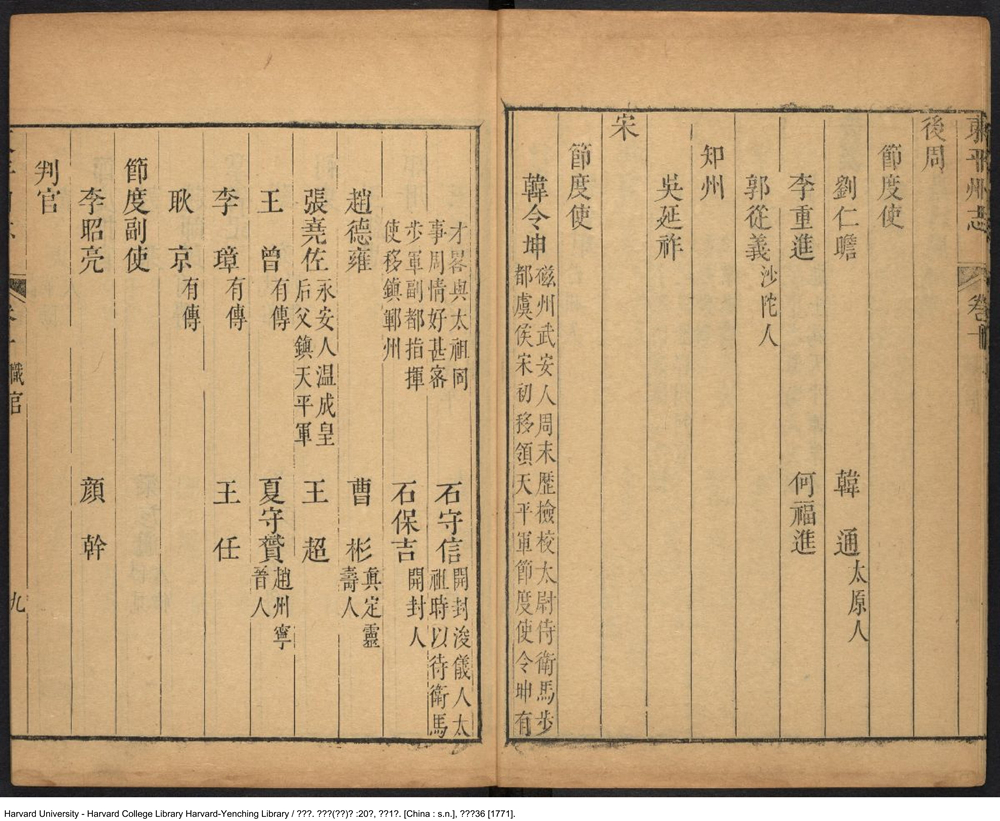 東平州志 卷十
後周
節度使
劉仁瞻 韓通太原人
李重進 何福進
郭從義沙陀人
知州
吳延祚
宋
節度使
韓令坤磁州武安人周末歴檢校太尉侍衛馬步
都虞侯宋初移領天平軍節度使令坤有
才畧與太祖同
事周情好甚密 石守信開封浚儀人太
祖時以侍衛馬
步軍副都指揮
使移鎮鄆州 石保吉開封人
趙德雍 曹彬真定靈
壽人
張堯佐永安人温成皇
后父鎮天平軍 王超
王曾有傳 夏守贇趙州寧
晉人
李璋有傳 王任
耿京有傳
節度副使
李昭亮 顔幹
判官
職官
九
Harvard University - Harvard College Library Harvard-Yenching Library / ???. ???(??)? :20?, ??1?. [China : s.n.], ???36 [1771].